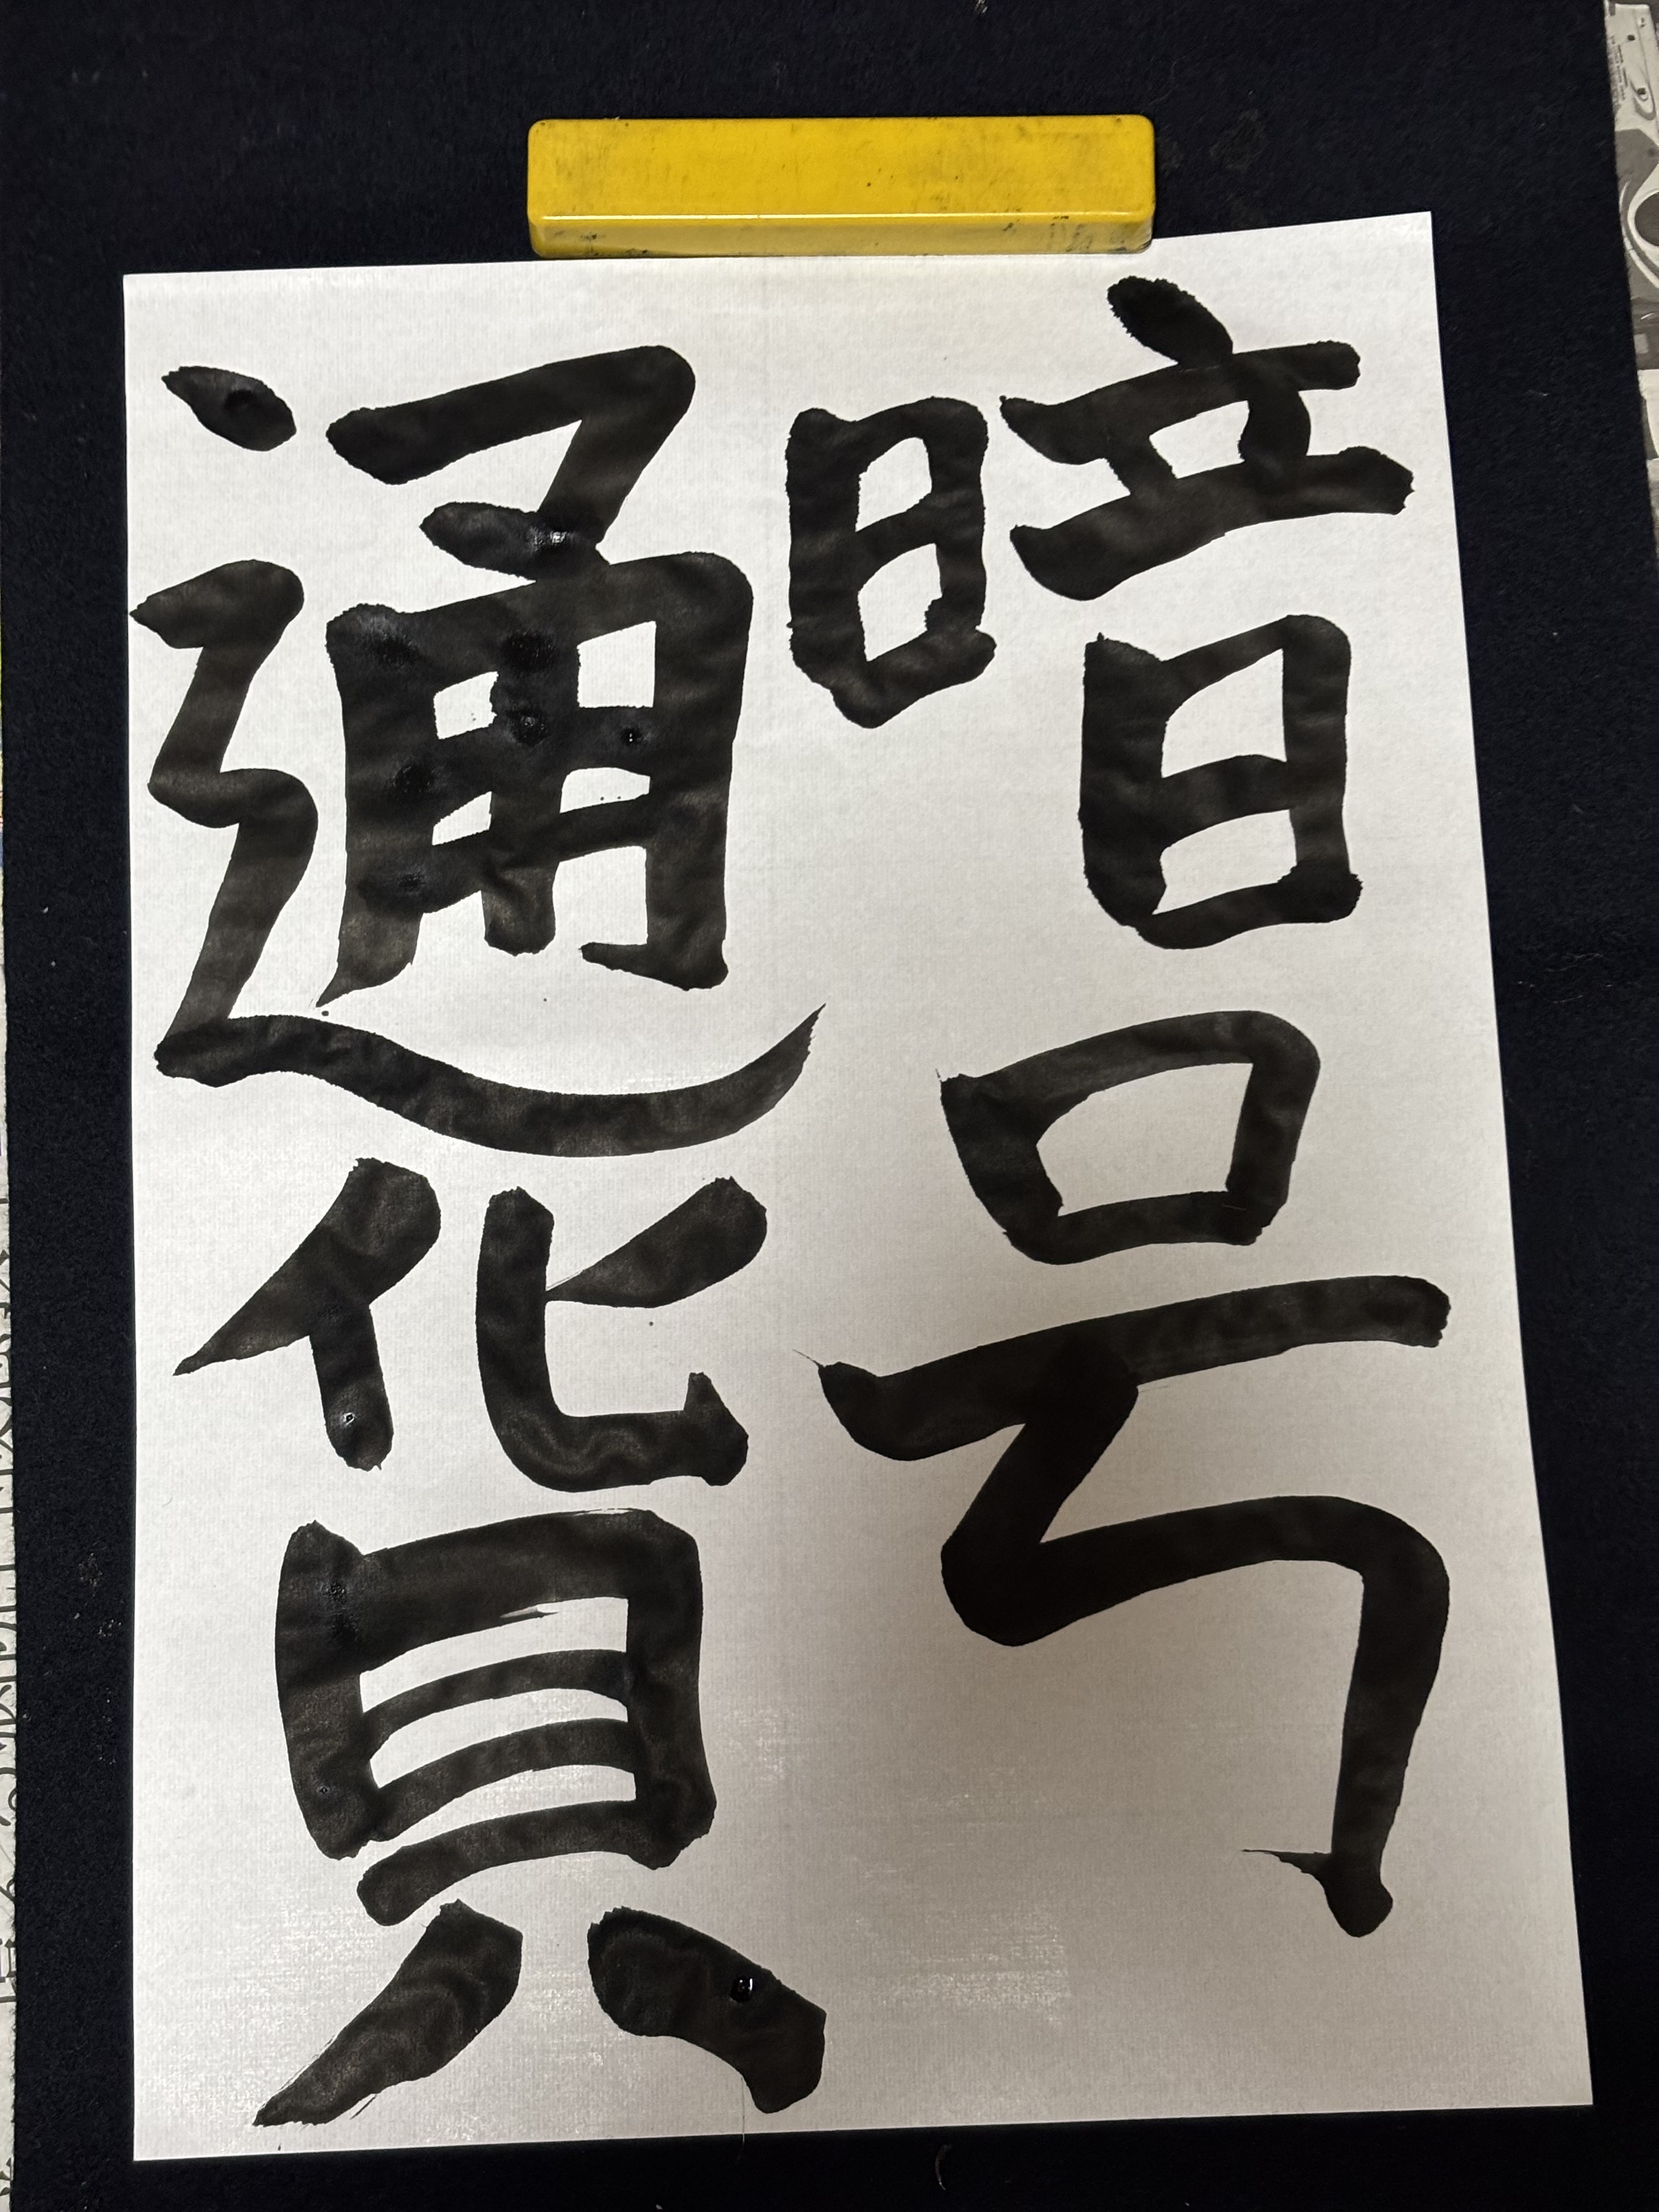 暗号
通貨